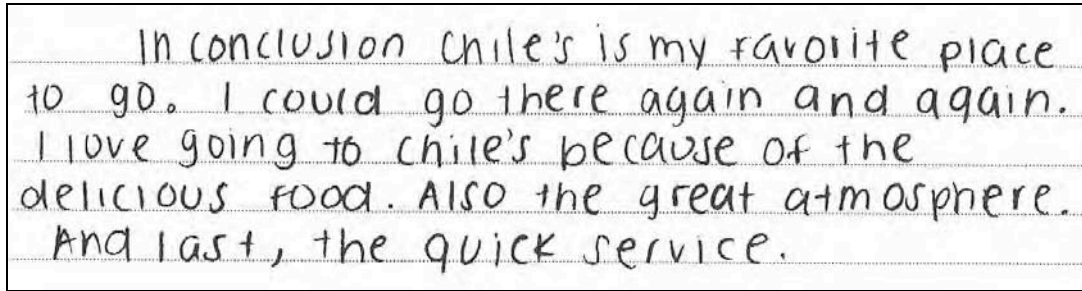 In conclusion Chile's is my favorite place
to go. I could go there again and again.
I love going to chile's because of the
delicious food. Also the great atmosphere.
And last, the quick service.